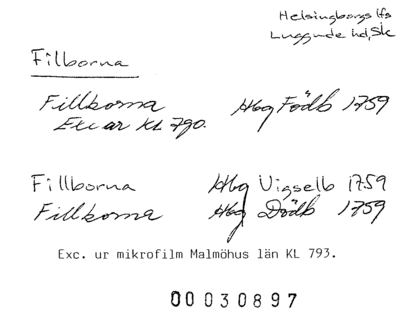 Helsingborgs lfs
Luggude hd, Sk
Fillborna
Fillborna Hbg Födb 1759
Exc ur KL 790.
Fillborna Hbg Vigselb 1759
Fillborna Hbg Dödb 1759
Exc. ur mikrofilm Malmöhus län KL 793.
00030897